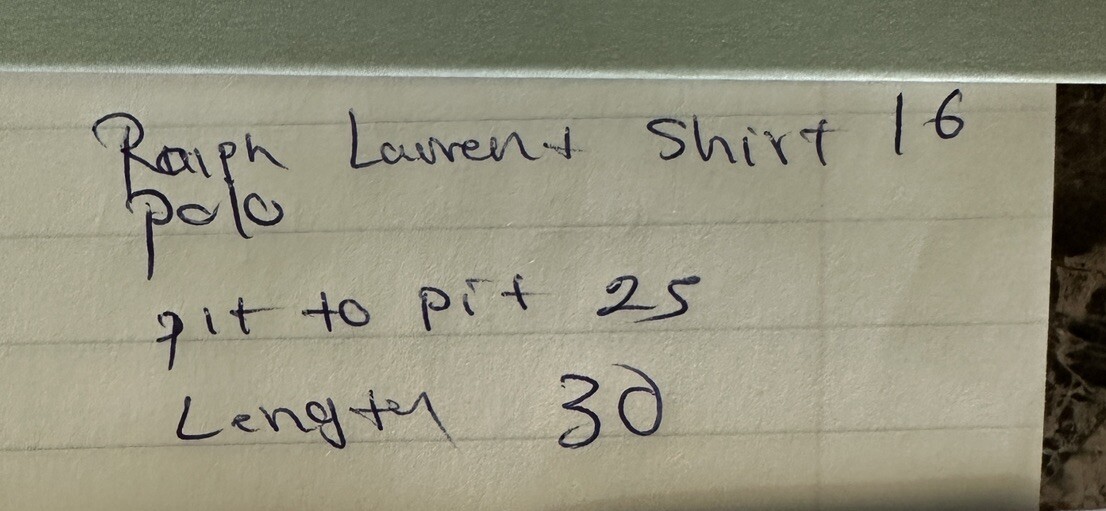 Ralph Laurent Shirt 16
Polo
pit to pit 25
Length 30